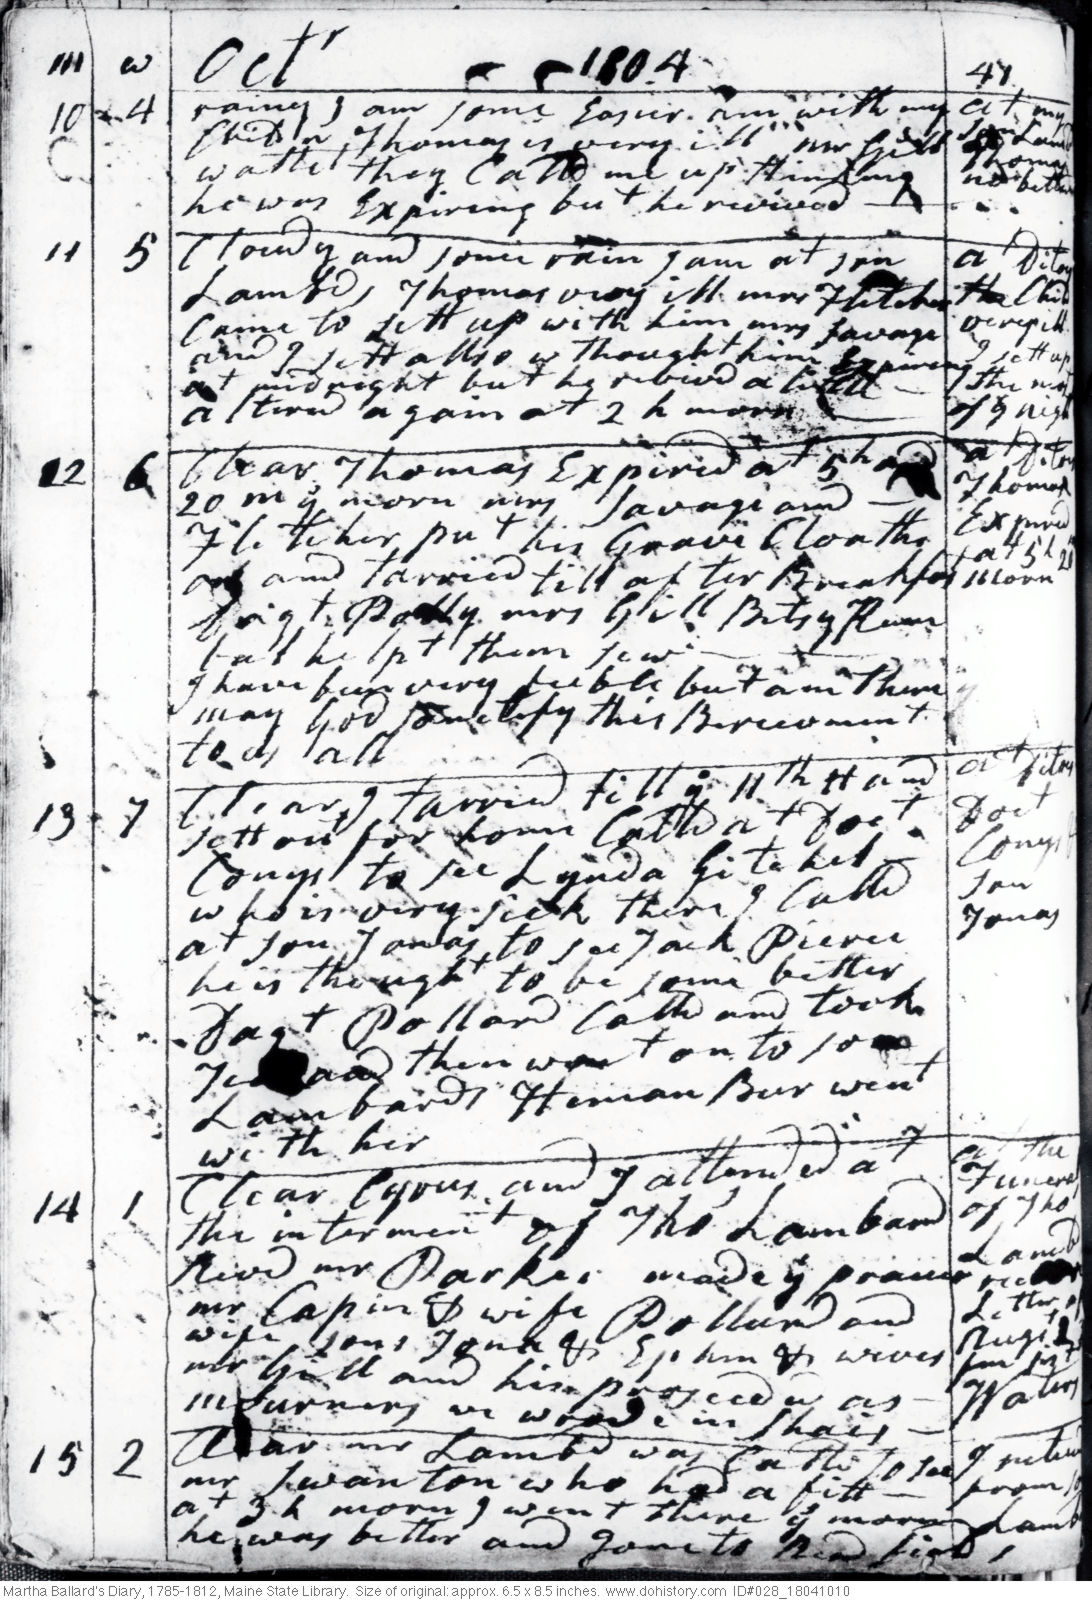 m w Octr 1804 47
10 4 rainy I am some Easier. am with my
Child n, Thomas is very ill mr Gill
watcht they Calld me up thinking
he was Expiring but he revived
at my
son Lambd
Thomas
no better
11 5 Cloudy and some rain I am at son
Lambds, Thomas very ill mrs Fletcher
Came to sett up with him mrs Savage
and I sett allso w thought him Expireing
at midnight but he revived a little
altered again at 2 h morn
at Ditoes
the Child
very ill
I sett up
the most
of ÿ nigh
12 6 Clear, Thomas Expired at 5 h and
20 m ÿ morn mrs Savage and
Fletcher put his Grave Cloaths
on and tarried till after Breakfast
Daigt Polly mrs Gill Betsy
has helpt them sew
I have been very feeble but am there
may God sanctify this Bereavment
to us all
at Ditoes
Thomas
Expired
at 5 h 20
morn
13 7 Clear, I tarried till ÿ 11th H and
sett out for home Calld at Doct
Conys to see Lynda Gitchel
who is very sick there, I Calld
at son Jonas, to see Jack Pierce
he is thought to be some better
Dagt Pollard Calld and took
Tea and then went on to son
Lambards Heman Bur went
with her
at Ditoes
Doct
Conys &
son
Jonas
14 1 Clear Cyrus and I attended at
the interment of Tho Lambard
Revd mr Parker made ÿ praier
mr Capin & wife Pollard and
wife sons Jona & Ephm & wives
mr Gill and his proseed as
mourners we wrode in Shais
at the
Funeral
of Tho
Lambd
Letter of
from sist
Waters
15 2 Clear mr Lambd was Calld to see
mr Swanton who had a fitt
at 3 h morn I went there ÿ morn
he was better and gone to Read fields
I returnd
from
Lamb
Martha Ballard's Diary, 1785-1812, Maine State Library. Size of original: approx. 6.5 x 8.5 inches. www.dohistory.com ID#028_18041010